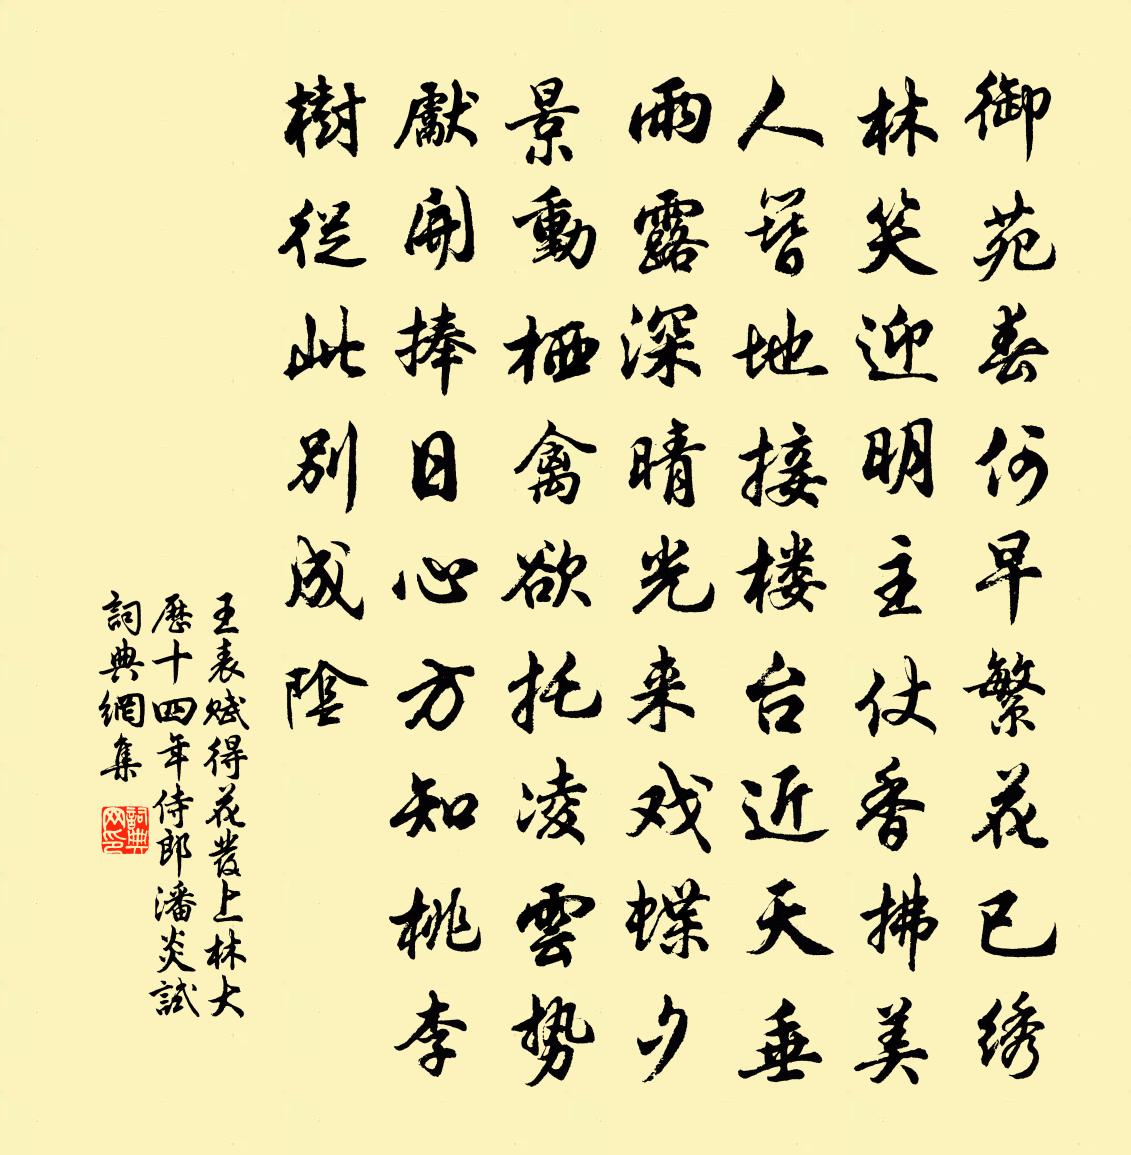 御苑春何早繁花已绣
林笑迎明主仗香拂美
人簪地接楼台近天垂
雨露深晴光来戏蝶夕
景動栖禽欲托凌雲势
獻開捧日心方知桃李
樹從此别成陰
王表赋得花發上林大
歷十四年侍郎潘炎試
詞典網集
詞典
网印